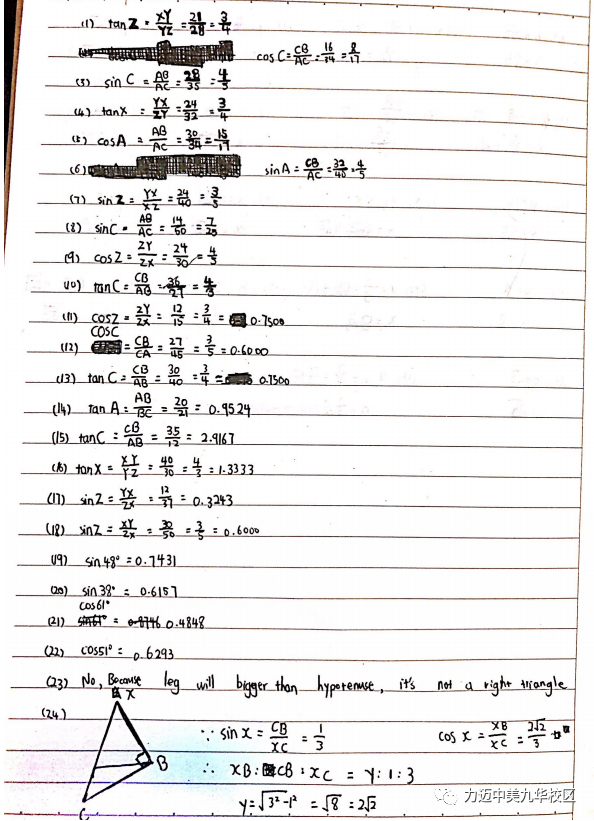 (1) tanZ = XY/YZ = 21/28 = 3/4
cosC = CB/AC = 16/34 = 8/17
(3) sin C = AB/AC = 28/35 = 4/5
(4) tanX = YZ/XY = 24/32 = 3/4
(5) cosA = AB/AC = 30/34 = 15/17
(6) sinA = CB/AC = 32/40 = 4/5
(7) sinZ = YX/XZ = 24/40 = 3/5
(8) sinC = AB/AC = 14/50 = 7/25
(9) cosZ = ZY/ZX = 24/30 = 4/5
(10) tanC = CB/AB = 36/27 = 4/3
(11) cosZ = ZY/ZX = 12/15 = 3/4 = 0.7500
(12) cosC = CB/CA = 27/45 = 3/5 = 0.6000
(13) tan C = CB/AB = 30/40 = 3/4 = 0.7500
(14) tan A = AB/BC = 20/21 = 0.9524
(15) tanC = CB/AB = 35/12 = 2.9167
(16) tanX = XY/YZ = 40/30 = 4/3 = 1.3333
(17) sinZ = YX/ZX = 12/37 = 0.3243
(18) sinZ = XY/ZX = 30/50 = 3/5 = 0.6000
(19) sin48° = 0.7431
(20) sin38° = 0.6157
cos61°
(21) sin61° = 0.8746 0.4848
(22) cos51° = 0.6293
(23) No, Because leg will bigger than hypotenuse, it's not a right triangle
(24)
X
B
C
∵ sin x = CB/XC = 1/3
cos x = XB/XC = 2√2/3
∴ XB : CB : XC = Y : 1 : 3
Y = √3²-1² = √8 = 2√2
力迈中美九华校区